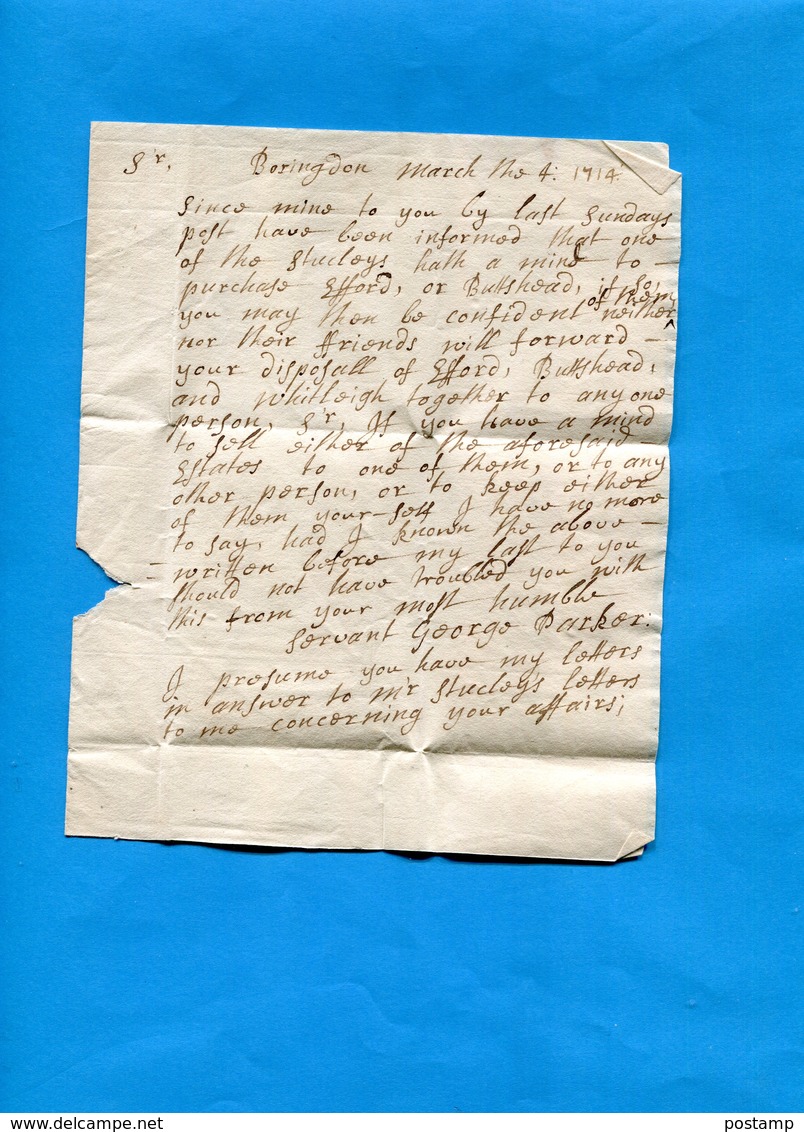 S'r, Boringdon March the 4: 1714
Since mine to you by last Sundays
post have been informed that one
of the Stucleys hath a mind to –
purchase Efford, or Buttshead, if so,
you may then be confident neither ^ of them
nor their ffriends will forward –
your disposall of Efford, Buttshead,
and Whitleigh together to any one
person, S'r, If you have a mind
to sell either of the aforesaid –
Estates to one of them, or to any
other person, or to keep either
of them your-self I have no more
to say, had I known the above –
– written before my last to you
should not have troubled you with
this from your most humble
servant George Parker:
I presume you have my letters
in answer to m'r Stucleys letters
to me concerning your affairs;
DELCAMPE.NET
postamp